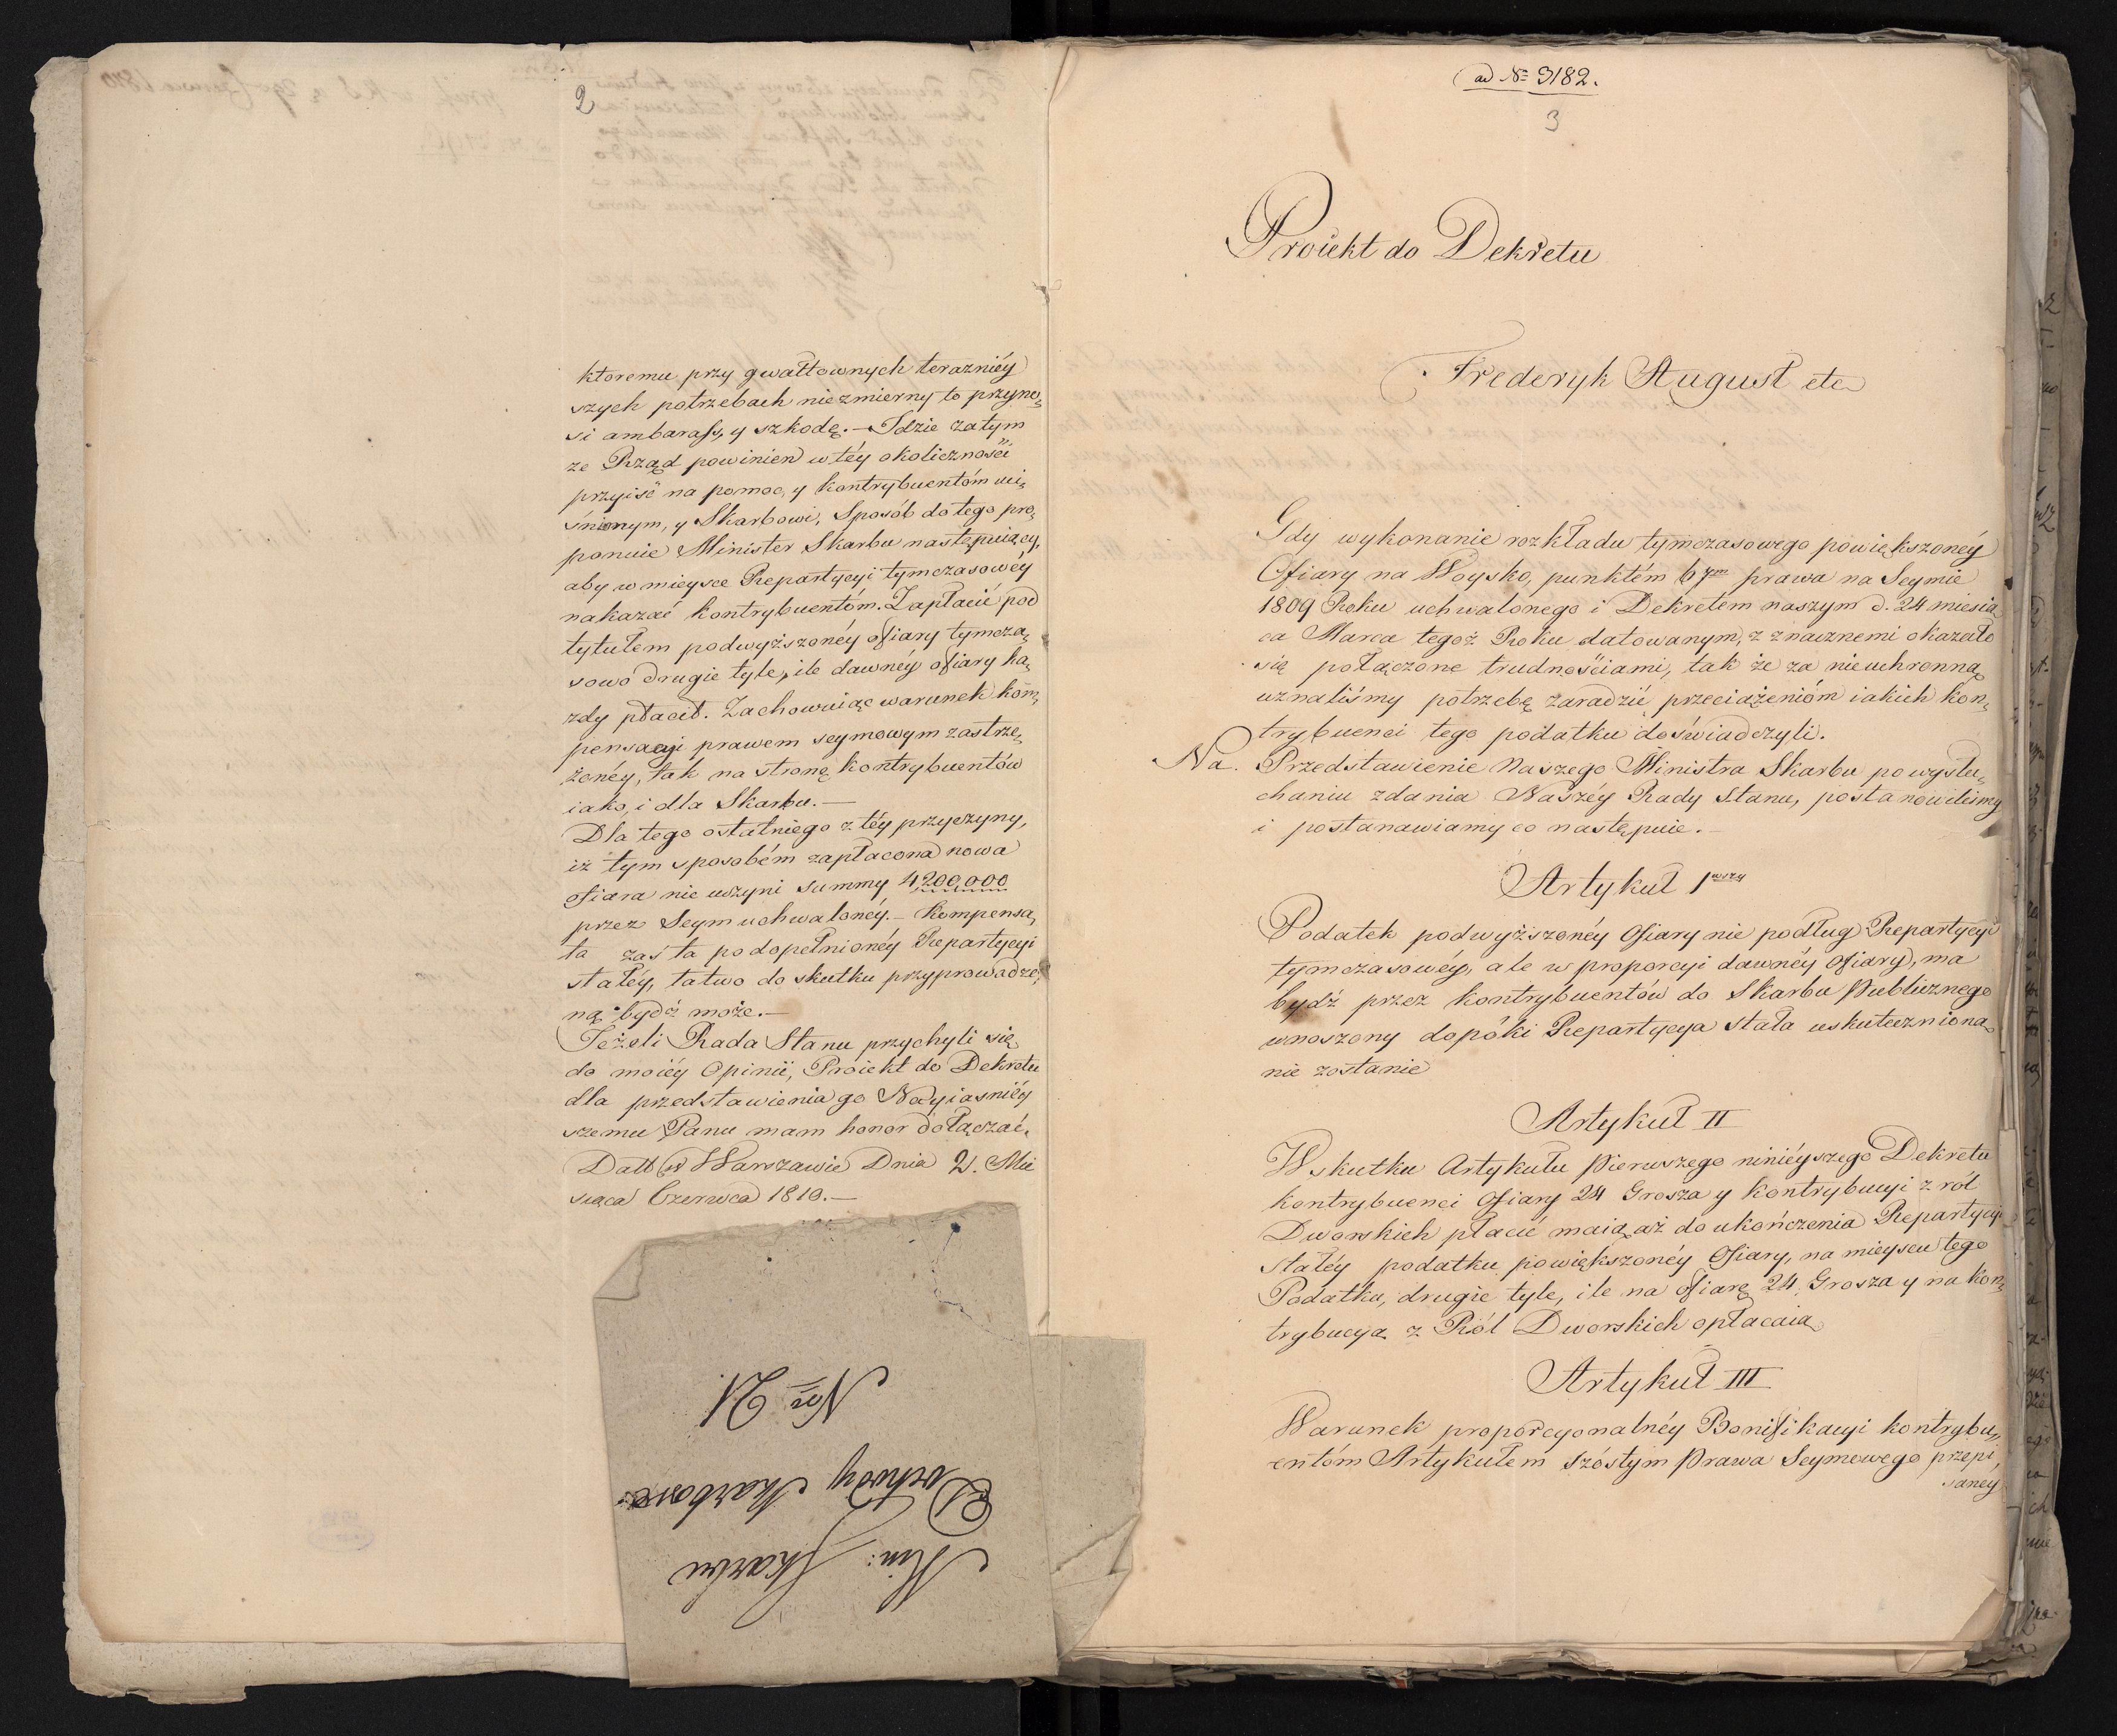 2
ktoremu przy gwałtownych terazniéy
szych potrzebach niezmierny to przyno,
si ambarass, y szkodę. — Idzie zatym
ze Rząd powinien w téy okolicznośći
przyiść na pomoc, y kontrybuentóm uci,
śnionym, y Skarbowi, Sposób do tego pro,
ponuie Minister Skarbu następuiący,
aby w mieysce Repartycyi tymczasowéy
nakazać kontrybuentóm. Zapłacić pod
tytułem podwyższonéy ofiary tymcza,
sowo drugie tyle, ile dawnéy ofiary ka,
zdy płacił. Zachowuiąc warunek kom,
pensacyi prawem seymowym zastrze,
żonéy, tak na stronę kontrybuentów
iako, i dla Skarbu. —
Dla tego ostatniego z téy przyczyny,
iż tym sposobém zapłacona nowa
ofiara nie uczyni summy 4200,000
przez Seym uchwalonéy. — Kompensa,
ta zaś ta po dopełnionéy Repartycyi
stałéy, łatwo do skutku przyprowadzo,
ną bydź może. —
Jeżeli Rada Stanu przychyli się
do moiéy Opinii, Proiekt do Dekretu
dla przedstawienia go Nayiasniéy
szemu Panu mam honor dołączać.
Datt w Warszawie Dnia 2. Mie
siąca Czerwca 1810. —
Min: Skarbu
Dochody Skarbowe
Nro 21.
ad No 3182.
3
Proiekt do Dekretu
Frederyk August etc
Gdy wykonanie rozkładu tymczasowego powiększonéy
Ofiary na Woysko, punktém 67m prawa na Seymie
1809 Roku uchwalonego i Dekretem naszym d. 24 miesią
ca Marca tegoż Roku datowanym, z znacznemi okazało
się połączone trudnościami, tak że za nieuchronną
uznaliśmy potrzebę zaradzić przeciążenióm iakich kon,
trybuenci tego podatku doświadczyli.
Na. Przedstawienie Naszego Ministra Skarbu po wysłu,
chaniu zdania Naszéy Rady Stanu, postanowiliśmy
i postanawiamy co następuie. —
Artykuł 1wszy
Podatek podwyższonéy Ofiary nie podług Repartycyi
tymczasowéy, ale w proporcyi dawnéy Ofiary, ma
bydź przez kontrybuentów do Skarbu Publicznego
wnoszony dopóki Repartycya stała uskuteczniona
nie zostanie
Artykuł II
W skutku Artykułu Pierwszego ninieyszego Dekretu
kontrybuenci Ofiary 24 Grosza y kontrybucyi z ról
Dworskich płacić maią, aż do ukończenia Repartycyi
stałéy podatku powiększonéy Ofiary, na mieyscu tego
Podatku, drugie tyle, ile na ofiarę 24 Grosza y na kon,
trybucyą z Ról Dworskich opłacaią
Artykuł III
Warunek proporcyonalnéy Bonifikacyi kontrybu,,
entóm Artykułem szóstym Prawa Seymowego przepi,
saney